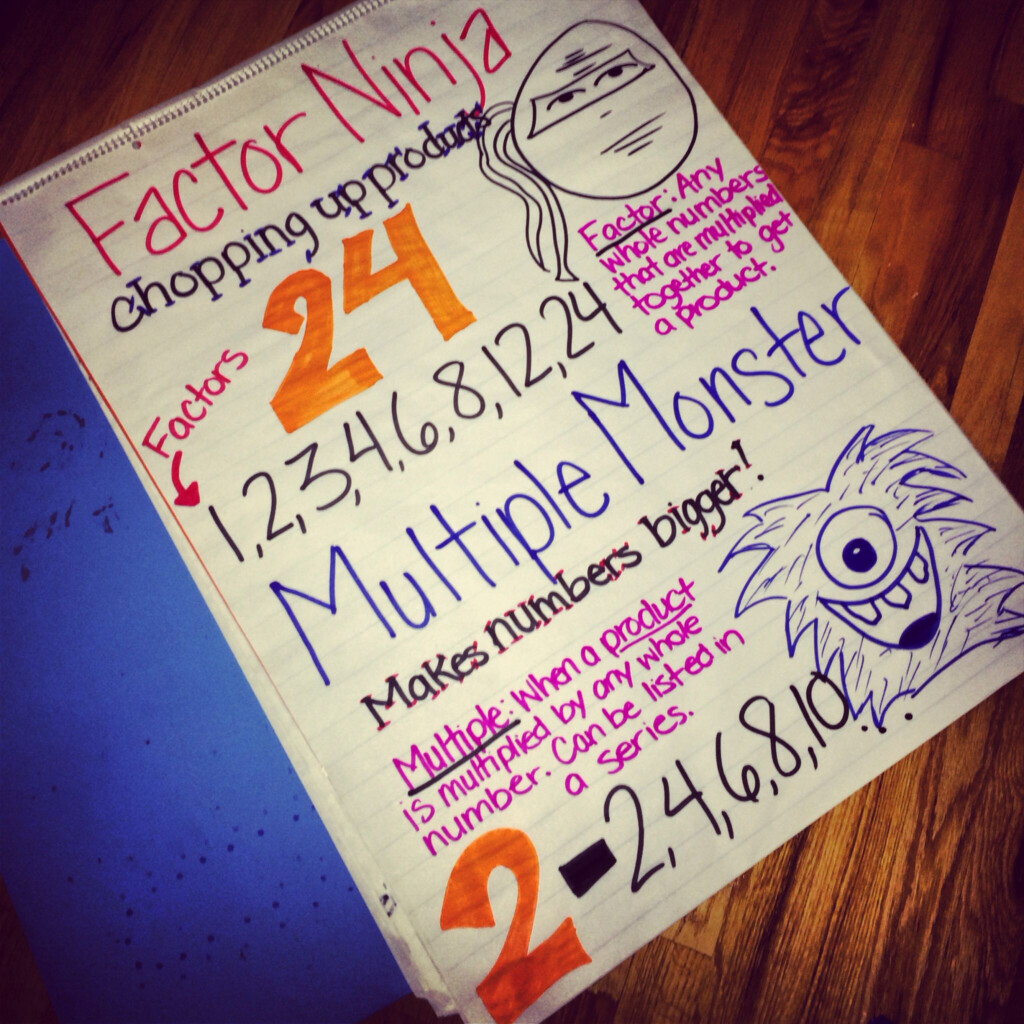 Factor Ninja
chopping up products
24
Factor: Any
whole numbers
that are multiplied
together to get
a product.
Factors
1,2,3,4,6,8,12,24
Multiple Monster
Makes numbers bigger!
Multiple: When a product
is multiplied by any whole
number. Can be listed in
a series.
2-2,4,6,8,10...